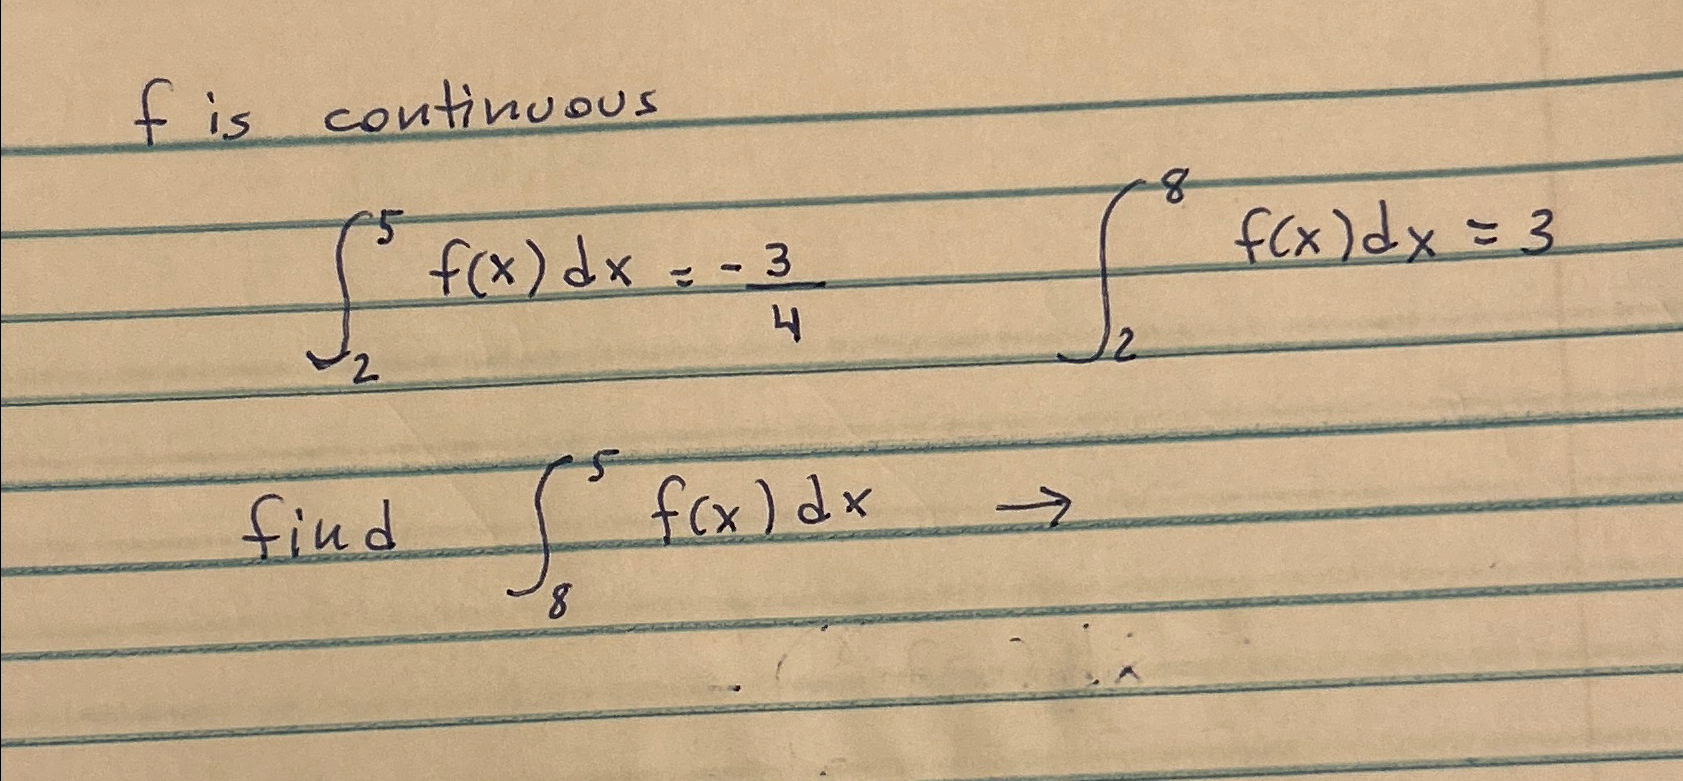 f is continuous
∫₂⁵ f(x) dx = -3/4   ∫₂⁸ f(x) dx = 3
find ∫₈⁵ f(x) dx →